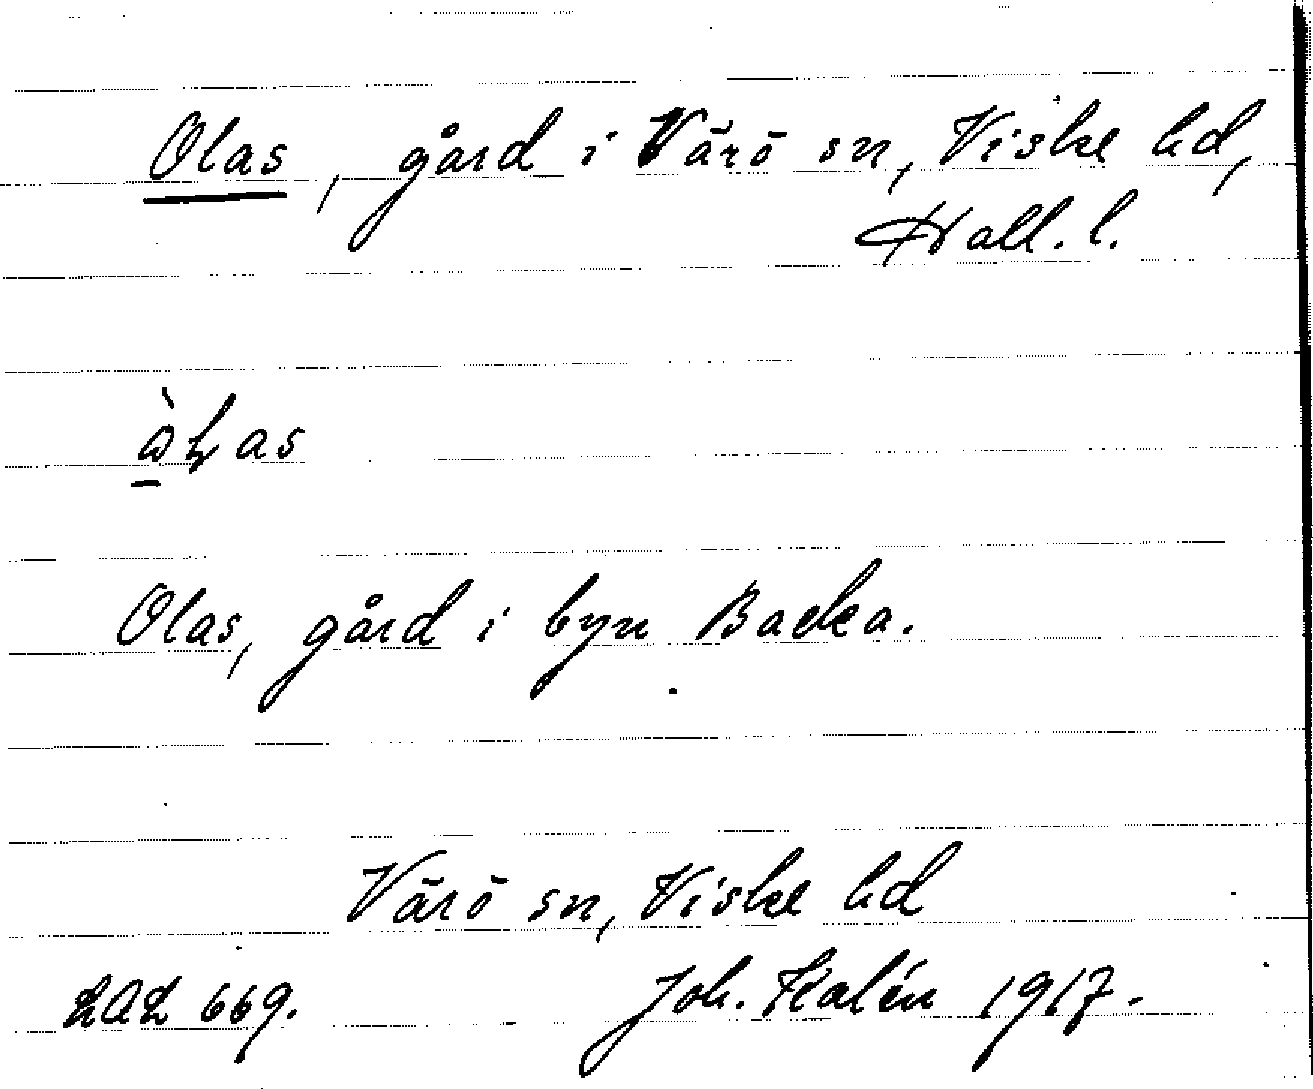 Olas, gård i Värö sn, Viske hd,
Hall. l.
Olas, gård i byn Backa.
Värö sn, Viske hd
LAL 669. Joh. Kalén 1917.